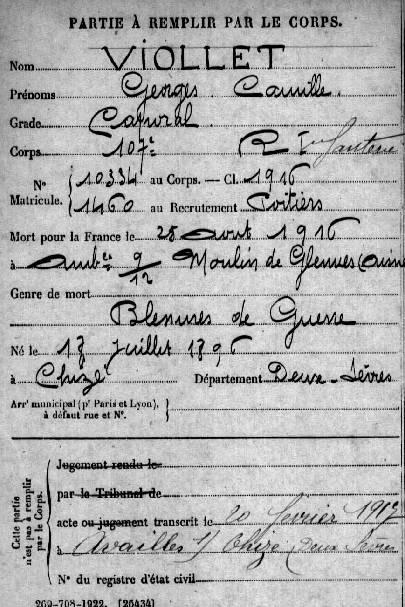 PARTIE À REMPLIR PAR LE CORPS.
Nom VIOLLET
Prénoms Georges Camille
Grade Caporal
Corps 107e Rt Infanterie
N° Matricule. { 10334 au Corps. — Cl. 1916
1460 au Recrutement Poitiers
Mort pour la France le 28 Août 1916
à Ambce 9/12 Moulin de Glennes (Aisne
Genre de mort
Blessures de Guerre
Né le 18 Juillet 1896
à Chizé Département Deux-Sèvres
Arrt municipal (pr Paris et Lyon), à défaut rue et N°. }
Cette partie n'est pas à remplir par le Corps.
Jugement rendu le
par le Tribunal de
acte ou jugement transcrit le 20 février 1917
à Availles s/ Chizé (Deux Sèvres
N° du registre d'état civil
269-708-1922. [26434]